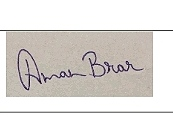 Aman Brar